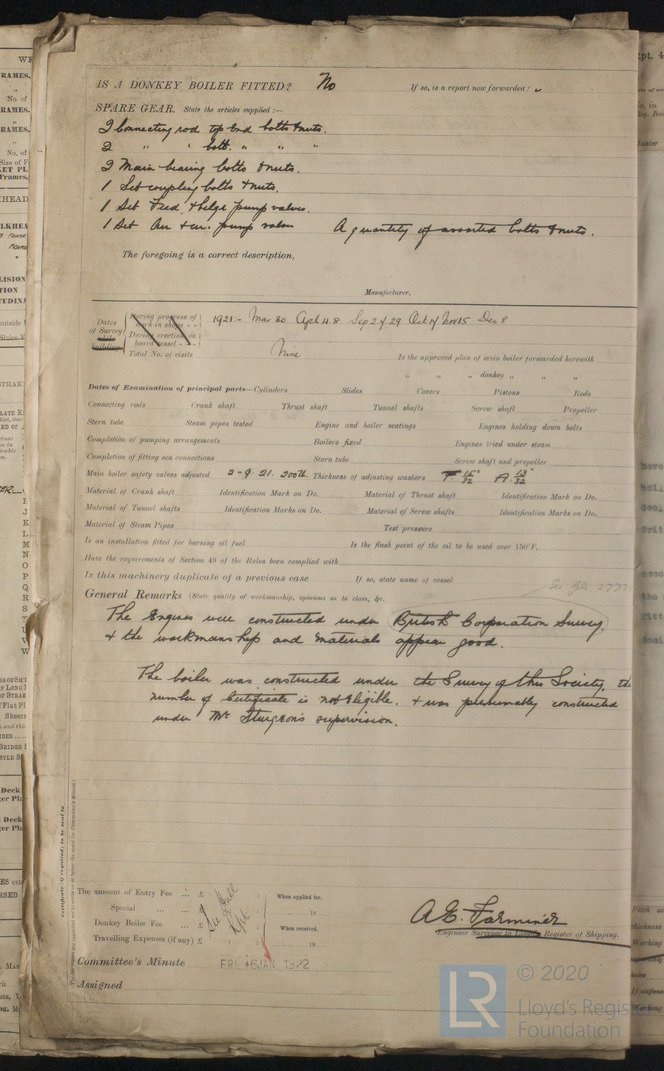 IS A DONKEY BOILER FITTED? No If so, is a report now forwarded?
SPARE GEAR. State the articles supplied:—
2 Connecting rod top end bolts & nuts.
2 " " bott. " " "
2 Main bearing bolts & nuts.
1 Set coupling bolts & nuts.
1 Set Feed & bilge pump valves.
1 Set Air & cir. pump valves A quantity of assorted bolts & nuts.
The foregoing is a correct description,
Manufacturer.
Dates of Survey while building
During progress of work in shops - -
During erection on board vessel - -
Total No. of visits
1921:- Mar 30 Apl 4 8 Sep 2 29 Oct Nov 15 Dec 8
Nine
Is the approved plan of main boiler forwarded herewith
" " " donkey " " "
Dates of Examination of principal parts—Cylinders Slides Covers Pistons Rods
Connecting rods Crank shaft Thrust shaft Tunnel shafts Screw shaft Propeller
Stern tube Steam pipes tested Engine and boiler seatings Engines holding down bolts
Completion of pumping arrangements Boilers fixed Engines tried under steam
Completion of fitting sea connections Stern tube Screw shaft and propeller
Main boiler safety valves adjusted 2-9-21. 200 lb. Thickness of adjusting washers F 15/32" A 13/32"
Material of Crank shaft Identification Mark on Do. Material of Thrust shaft Identification Mark on Do.
Material of Tunnel shafts Identification Marks on Do. Material of Screw shafts Identification Marks on Do.
Material of Steam Pipes Test pressure
Is an installation fitted for burning oil fuel Is the flash point of the oil to be used over 150°F.
Have the requirements of Section 49 of the Rules been complied with
Is this machinery duplicate of a previous case If so, state name of vessel
General Remarks (State quality of workmanship, opinions as to class, &c.
The Engines were constructed under British Corporation Survey,
& the workmanship and materials appear good.
The boiler was constructed under the Survey of this Society, the
number of Certificate is not eligible. & was presumably constructed
under Mr Sturgeon's supervision.
The amount of Entry Fee .. £
Special ... ... £
Donkey Boiler Fee ... £
Travelling Expenses (if any) £
See Hull Rpt
When applied for,
19
When received,
19
A. E. Farminer
Engineer Surveyor to Lloyd's Register of Shipping.
Committee's Minute FRI. 6 JAN. 1922
Assigned
© 2020
LR
Lloyd's Regis
Foundation